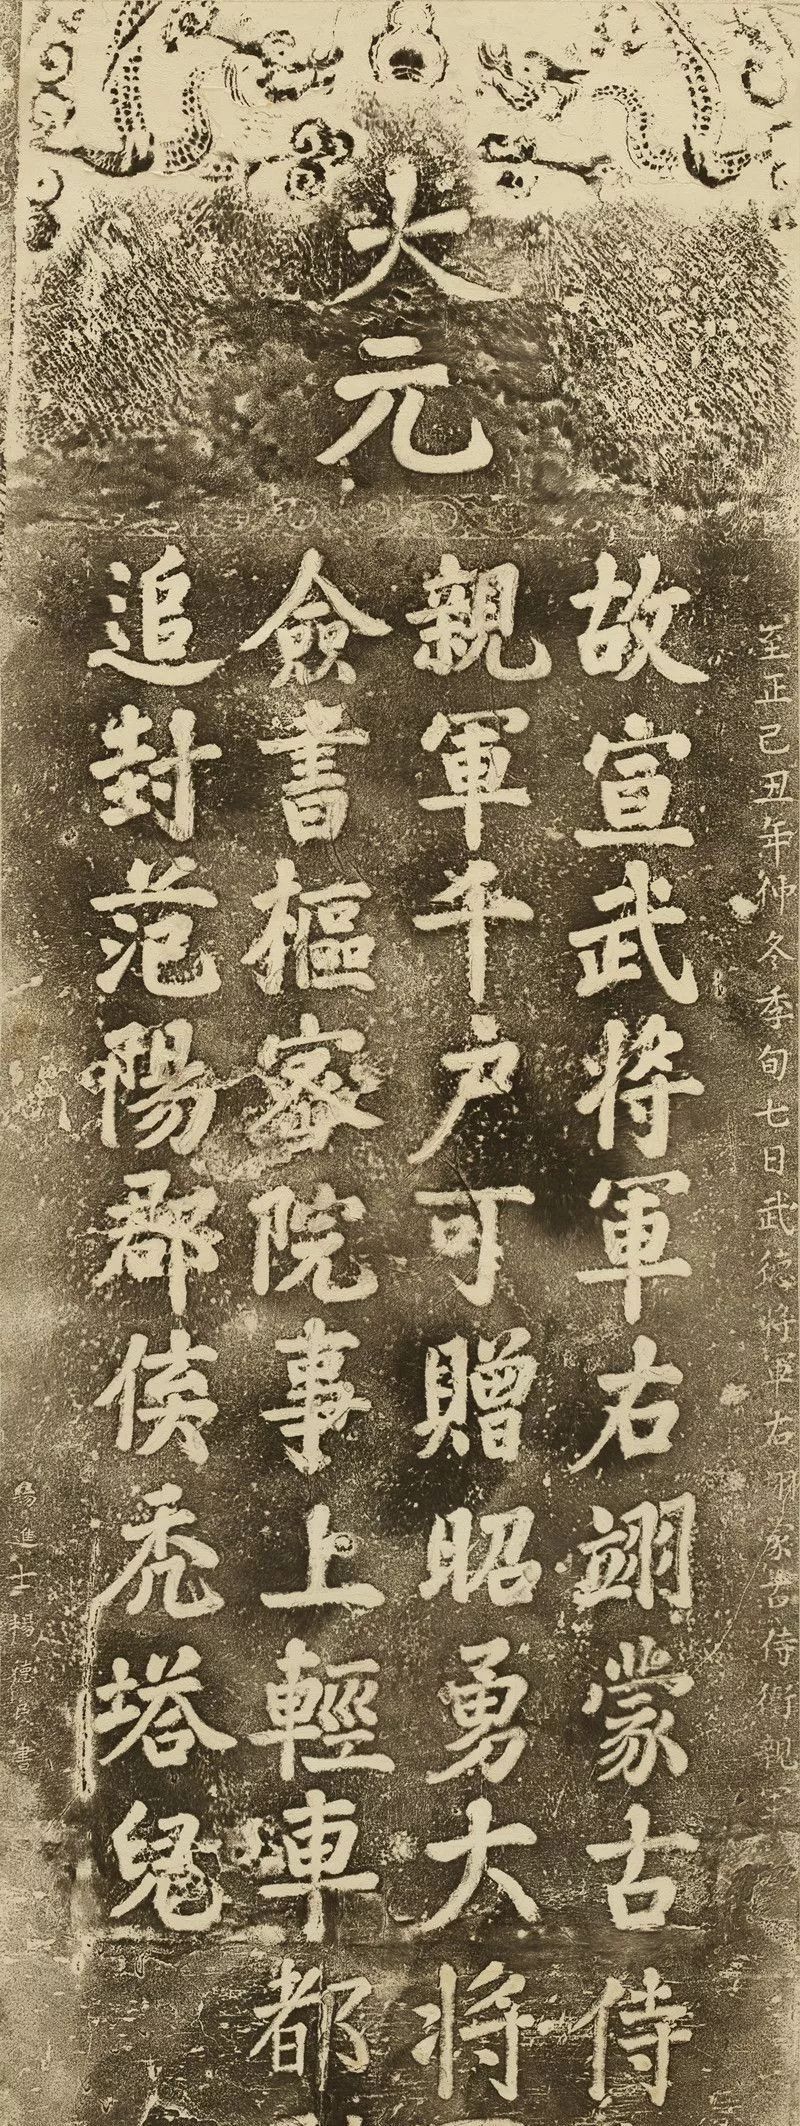 大元
至正己丑年仲冬季旬七日武德將軍右翊蒙古侍衛親
故宣武將軍右翊蒙古侍
親軍千户可贈昭勇大將
僉書樞密院事上輕車都
追封范陽郡侯禿塔兒
進士楊德書